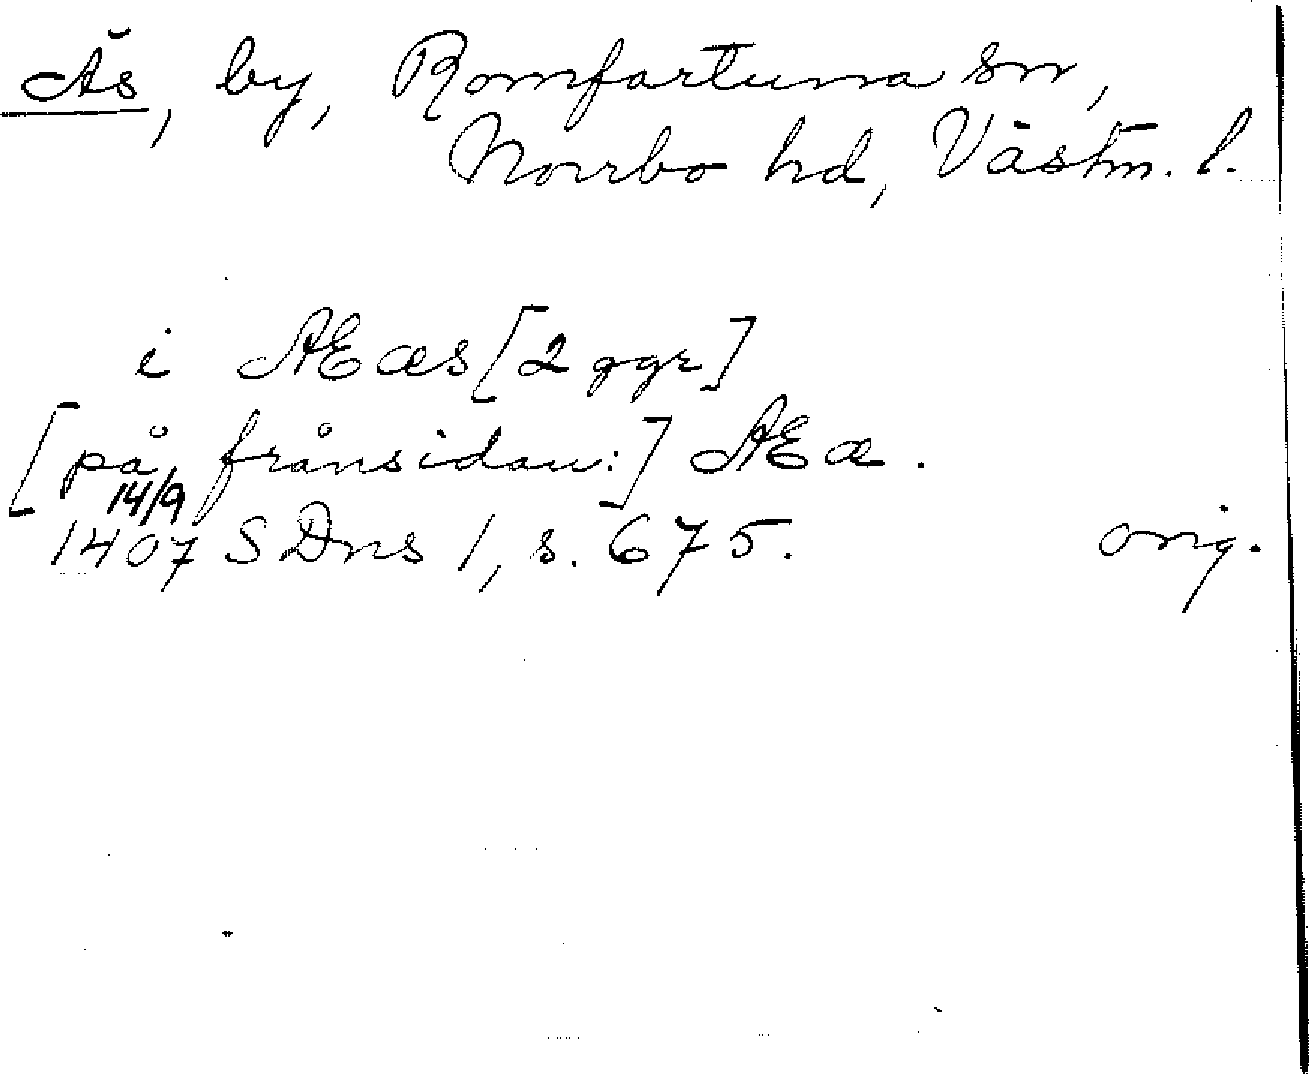 Ås, by, Romfartuna sn,
Norrbo hd, Västm. l.
i Ææs [2 ggr]
[på frånsidan:] Ææ.
14/9
1407 SDns 1, s. 675. orig.